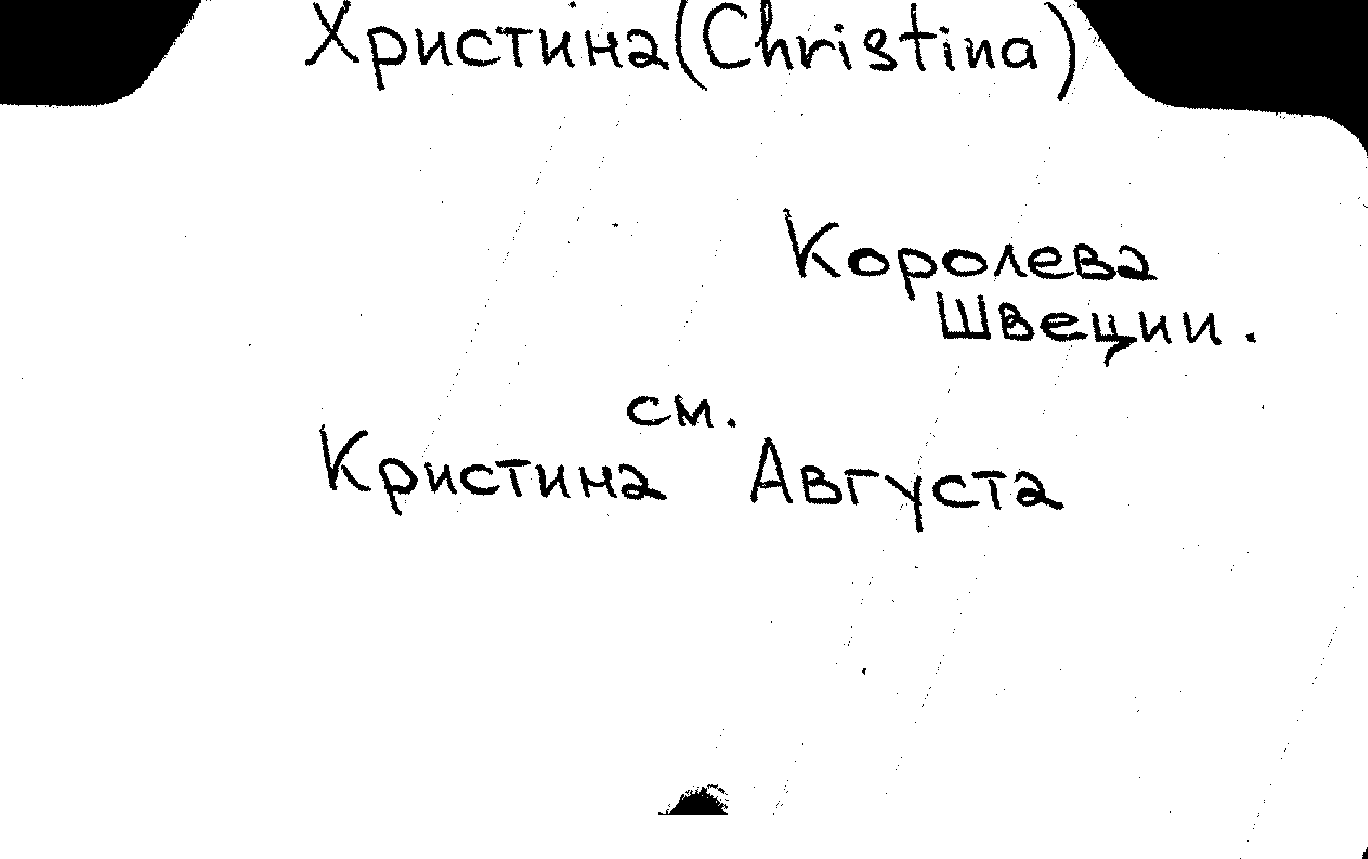 Христина(Christina)
Королева
Швеции.
см.
Кристина Августа